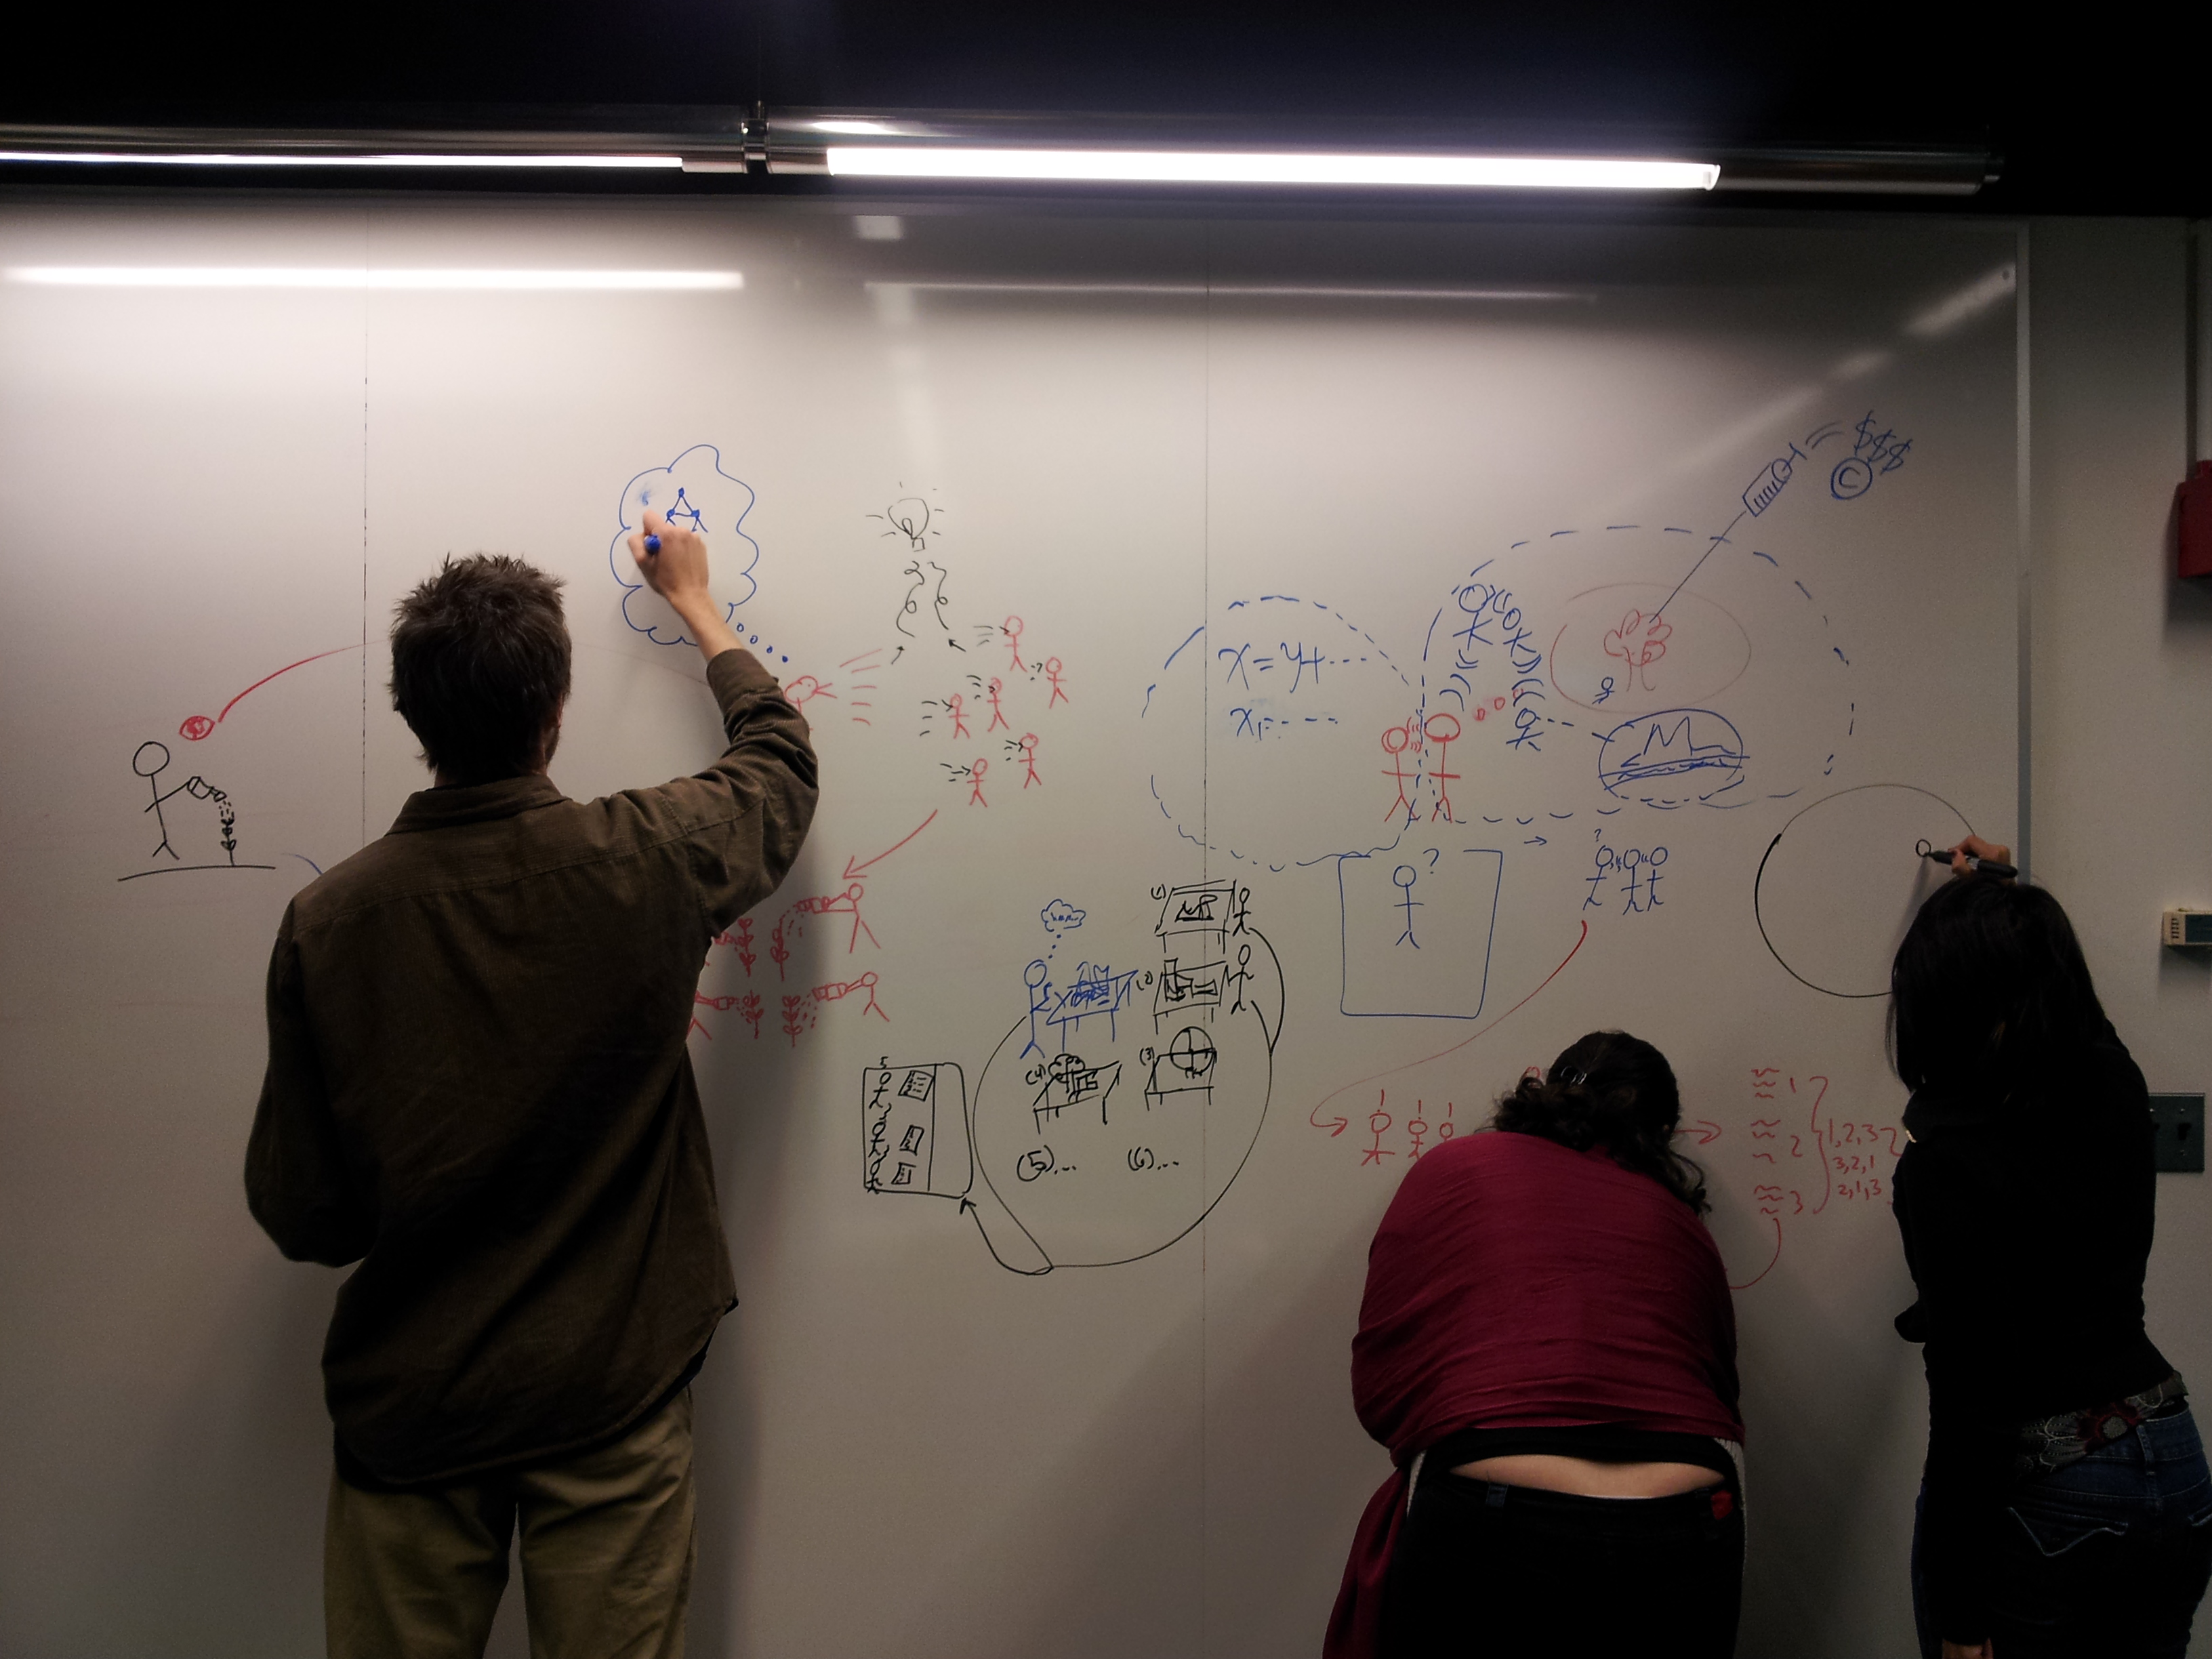 $$$
©
x = y + ....
?
?
(2)
(3)
(4)
(5)...
(6)...
1
2
3
1,2,3
3,2,1
2,1,3